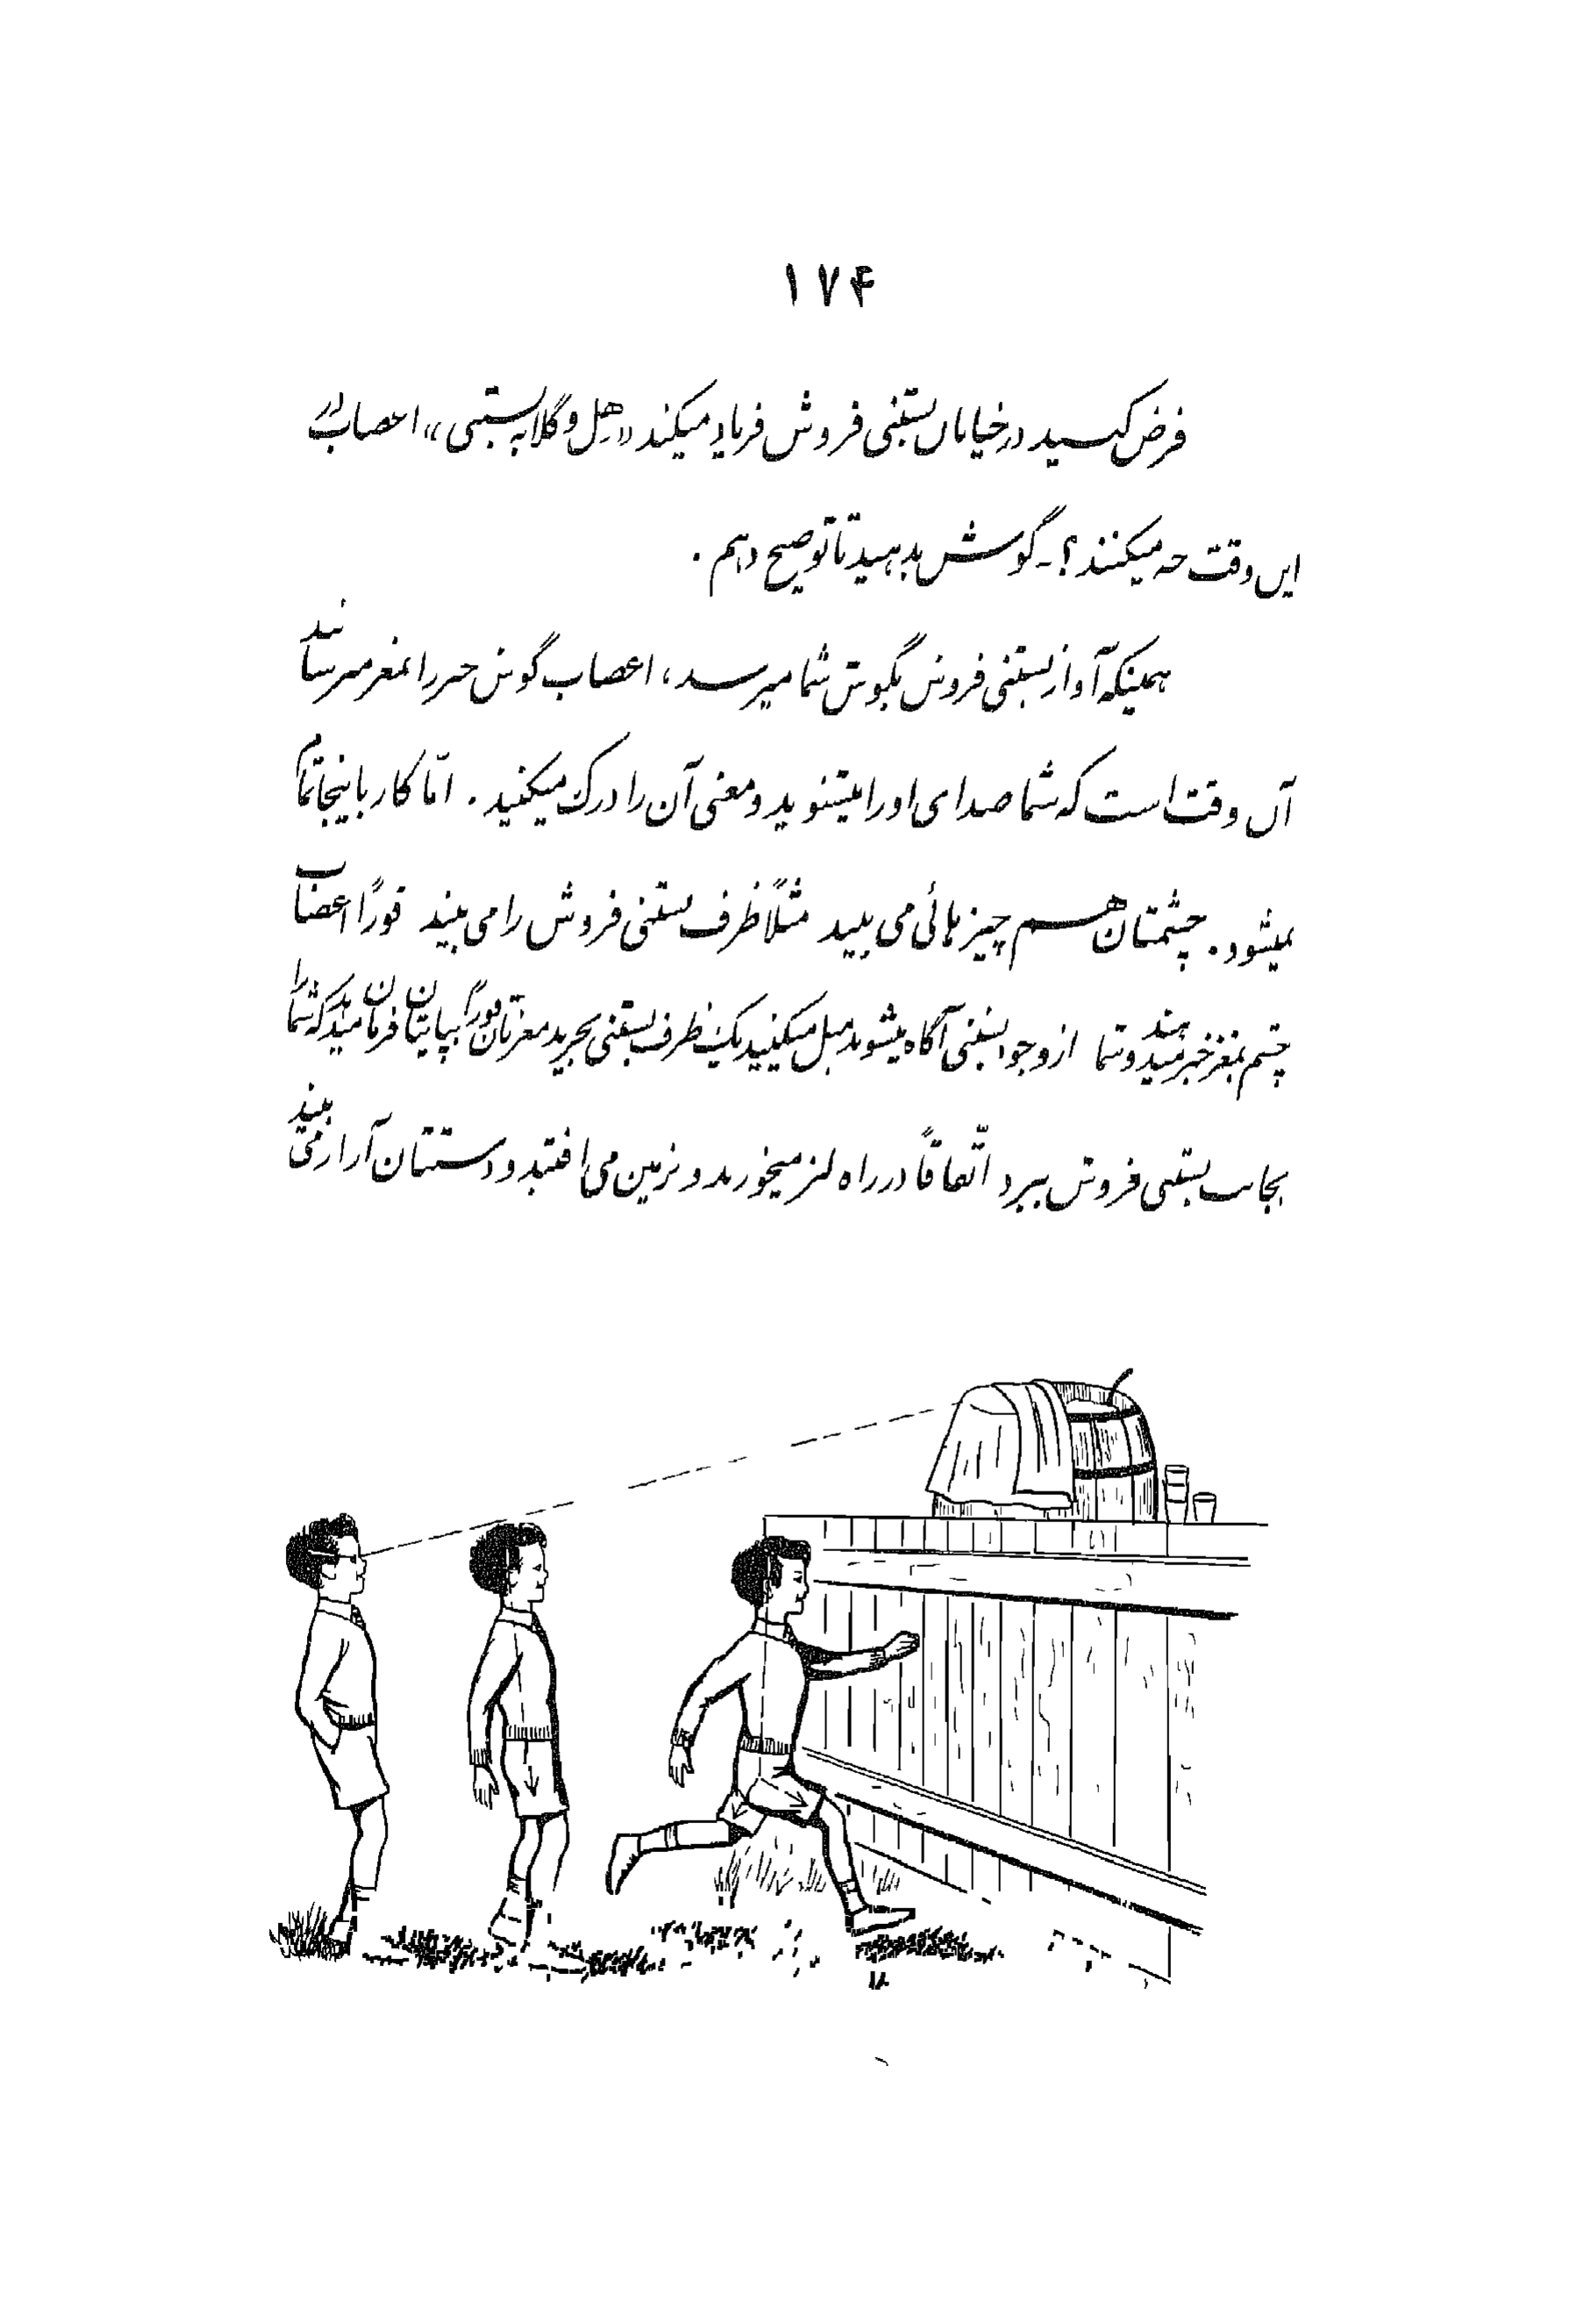 ۱۷۴
فرض کنید در خیابان بستنی فروش فریاد میکند «هل و گلابه بستنی» اعصاب
این وقت چه میکنند؟ ـ گوش بدهید تا توضیح دهم .
همینکه آواز بستنی فروش بگوش شما میرسد، اعصاب گوش خبر را بمغز میرسانند
آن وقت است که شما صدای او را میشنوید و معنی آن را درک میکنید . امّا کار باینجا تمام
نمیشود . چشمتان هم چیزهائی می بیند مثلاً ظرف بستنی فروش را می بیند فوراً اعصاب
چشم بمغز خبر میدهند و شما از وجود بستنی آگاه میشوید میل میکنید یک ظرف بستنی بخرید مغزتان فوراً بپایتان فرمان میدهد که شما را
بجانب بستنی فروش ببرد اتّفاقاً در راه لنز میخورید و بزمین می افتید و دستتان آزار می بیند